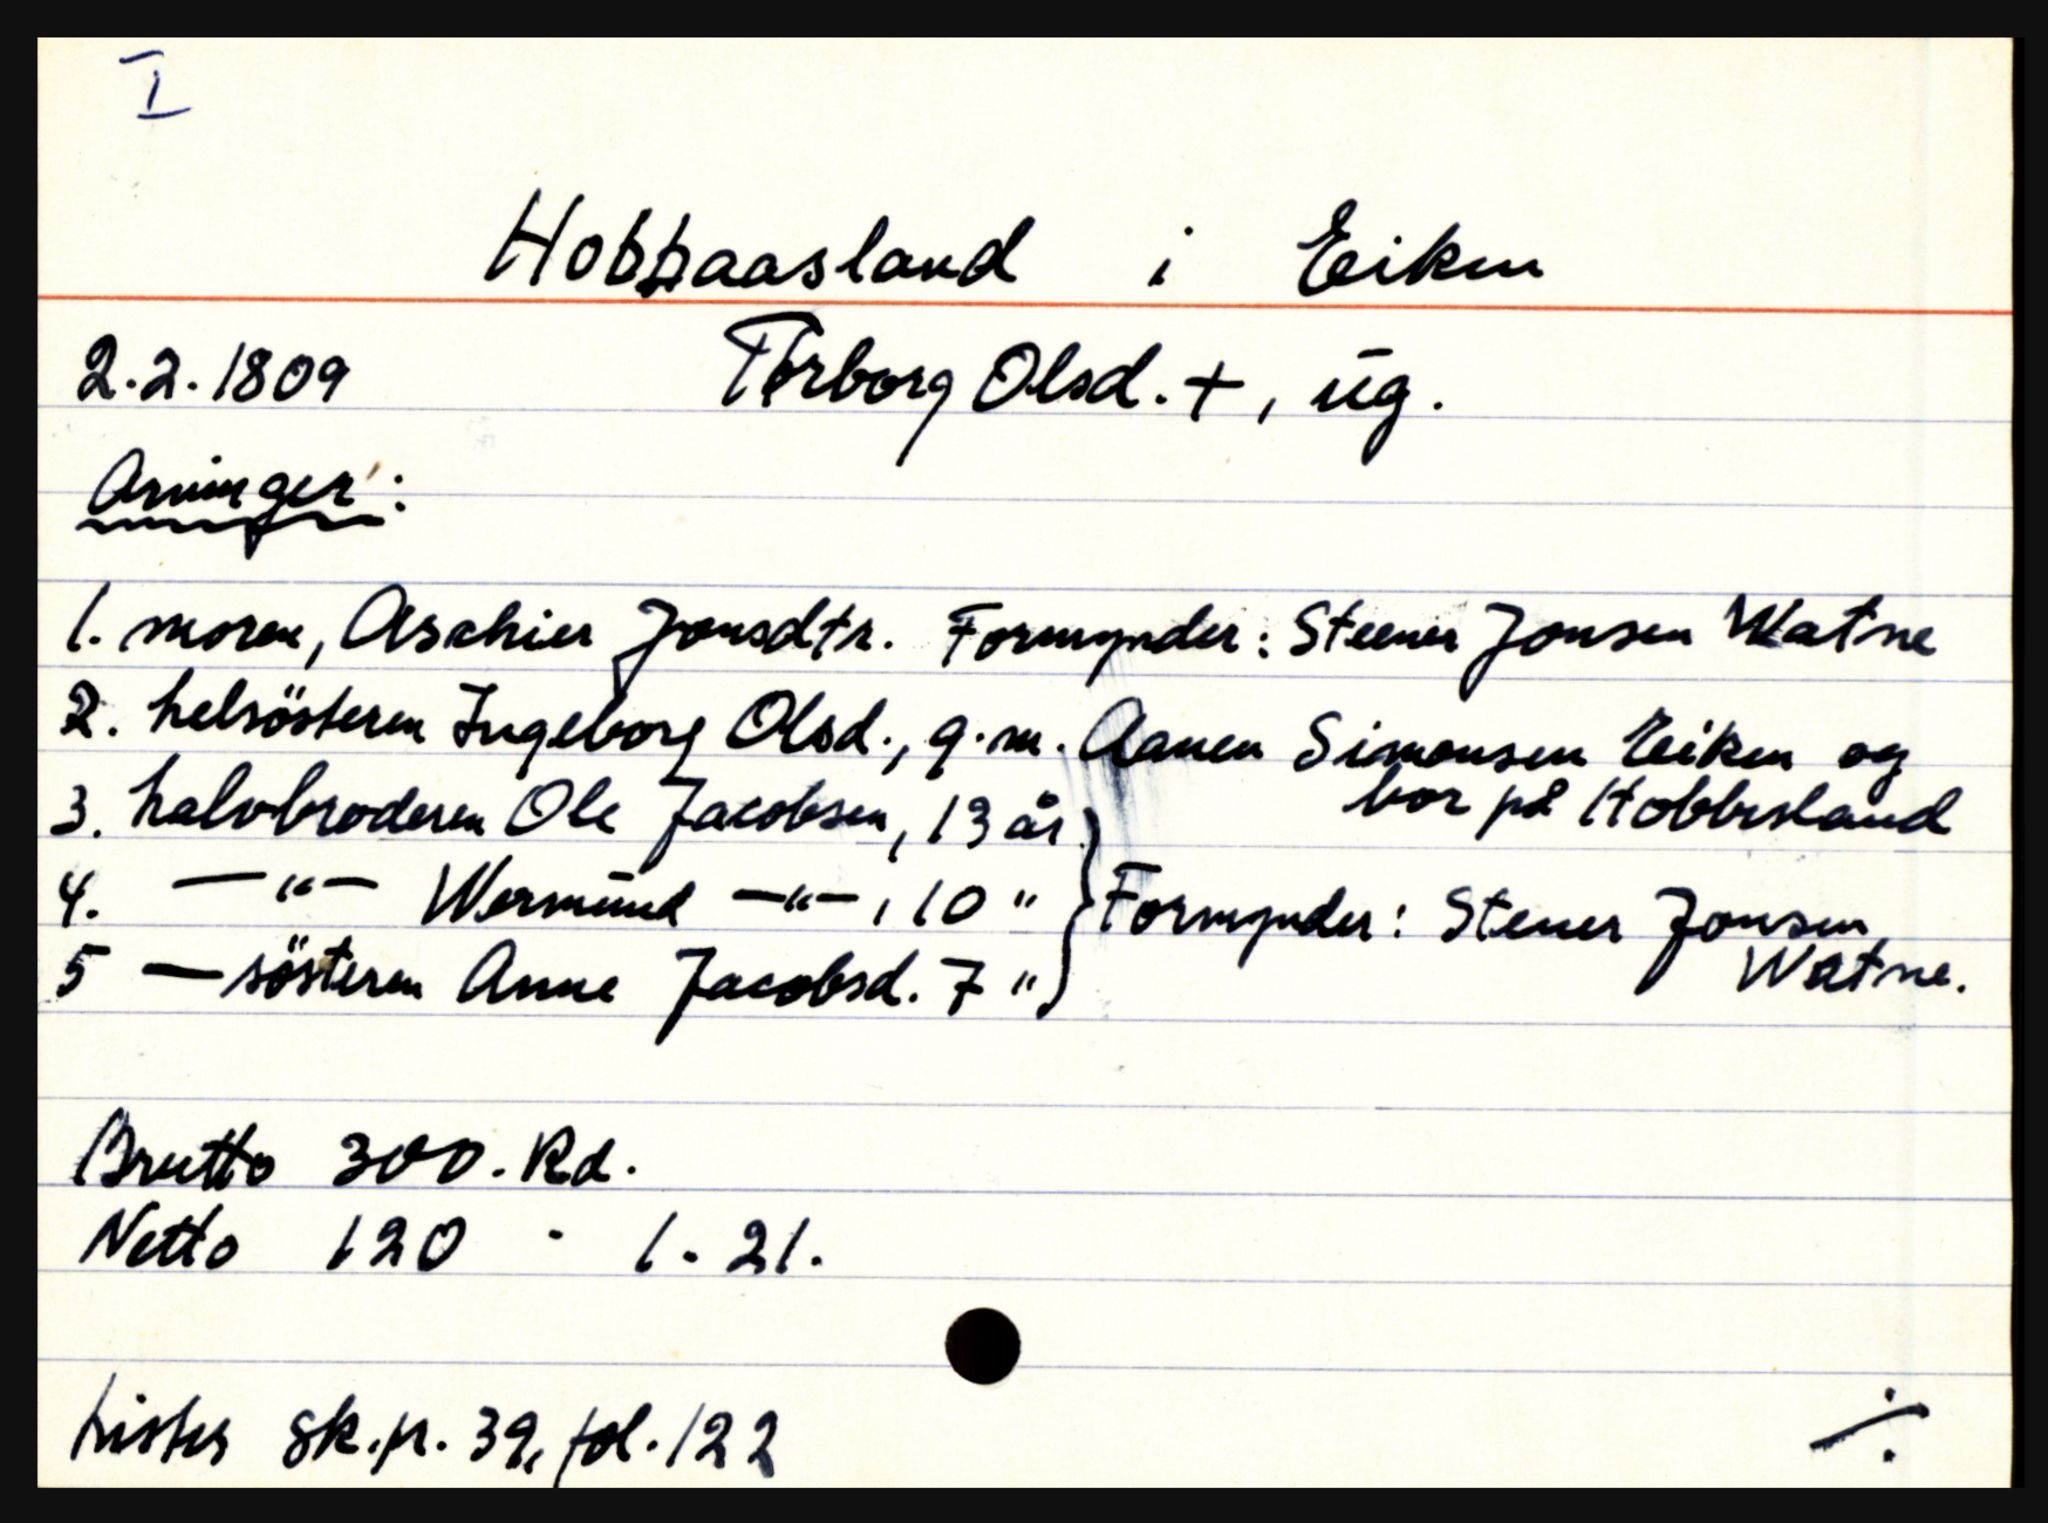 I
Hobbaasland i Eiken
2.2.1809 Torborg Olsd. +, ug.
Arvinger:
1. moren, Aschier Jonsdtr. Formynder: Steener Jonsen Watne
2. helsösteren Ingeborg Olsd., g.m. Aanen Simonsen Eiken og
bor på Hobbesland
3. halvbroderen Ole Jacobsen, 13 år
4. —"— Wermund —"—, 10 " Formynder: Stener Jonsen
Watne.
5 — sösteren Anne Jacobsd. 7 "
Brutto 300. Rd.
Netto 120 - 1. 21.
Lister sk.pr. 39, fol. 122
⁒